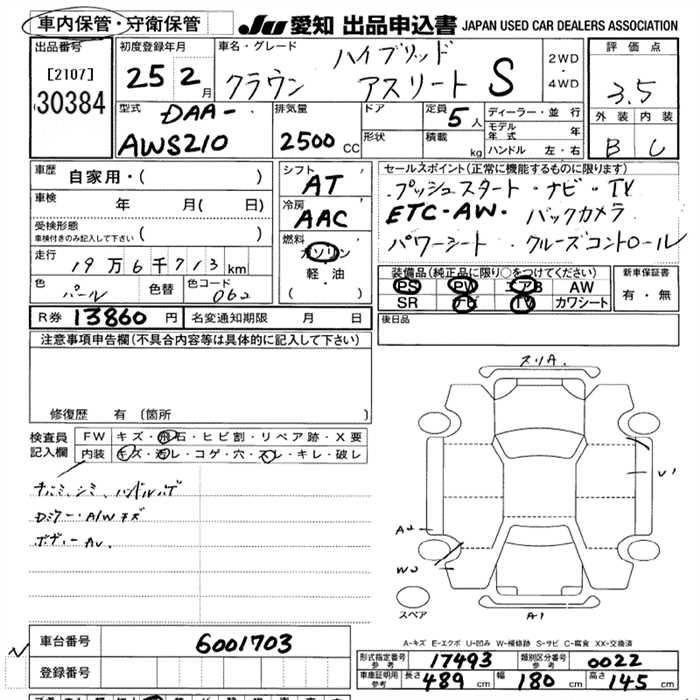 車内保管・守衛保管 JU 愛知 出品申込書 JAPAN USED CAR DEALERS ASSOCIATION
出品番号 初度登録年月 車名・グレード ハイブリッド 2WD・4WD 評価点
[2107] 25 2月 クラウン アスリート S 3.5
30384 型式 DAA- 排気量 ドア 定員 5人 ディーラー・並行 外装 内装
AWS210 2500cc 形状 積載 kg モデル年式 年 B C
ハンドル 左・右
車歴 自家用・( ) シフト AT セールスポイント(正常に機能するものに限ります)
車検 年 月( 日) 冷房 AAC プッシュスタート・ナビ・TV
受検形態 ( ) ETC・AW・バックカメラ
車検付きのみ記入して下さい 燃料 ガソリン パワーシート クルーズコントロール
走行 19万6千713km 軽・油
色 パール 色替 色コード 062 ( )
装備品(純正品に限り○をつけてください) 新車保証書
PS PW エアB AW 有・無
SR ナビ TV カワシート
R券 13860円 名変通知期限 月 日 後日品
注意事項申告欄(不具合内容等は具体的に記入して下さい)
修復歴 有 (箇所 )
スリA.
検査員記入欄 FW キズ・飛石・ヒビ割・リペア跡・X要
内装 キズ・汚レ・コゲ・穴・スレ・キレ・破レ
シミ、ハンドルハゲ
Dミラー・A/Wキズ
ボデーAU.
U1
A2
W2
スペア A1
A-キズ E-エクボ U-凹み W-補修跡 S-サビ C-腐食 XX-交換済
車台番号 6001703
登録番号
形式指定番号 参考 17493 類別区分番号 参考 0022
車庫証明用 参考 長さ 489cm 幅 180cm 高さ 145cm